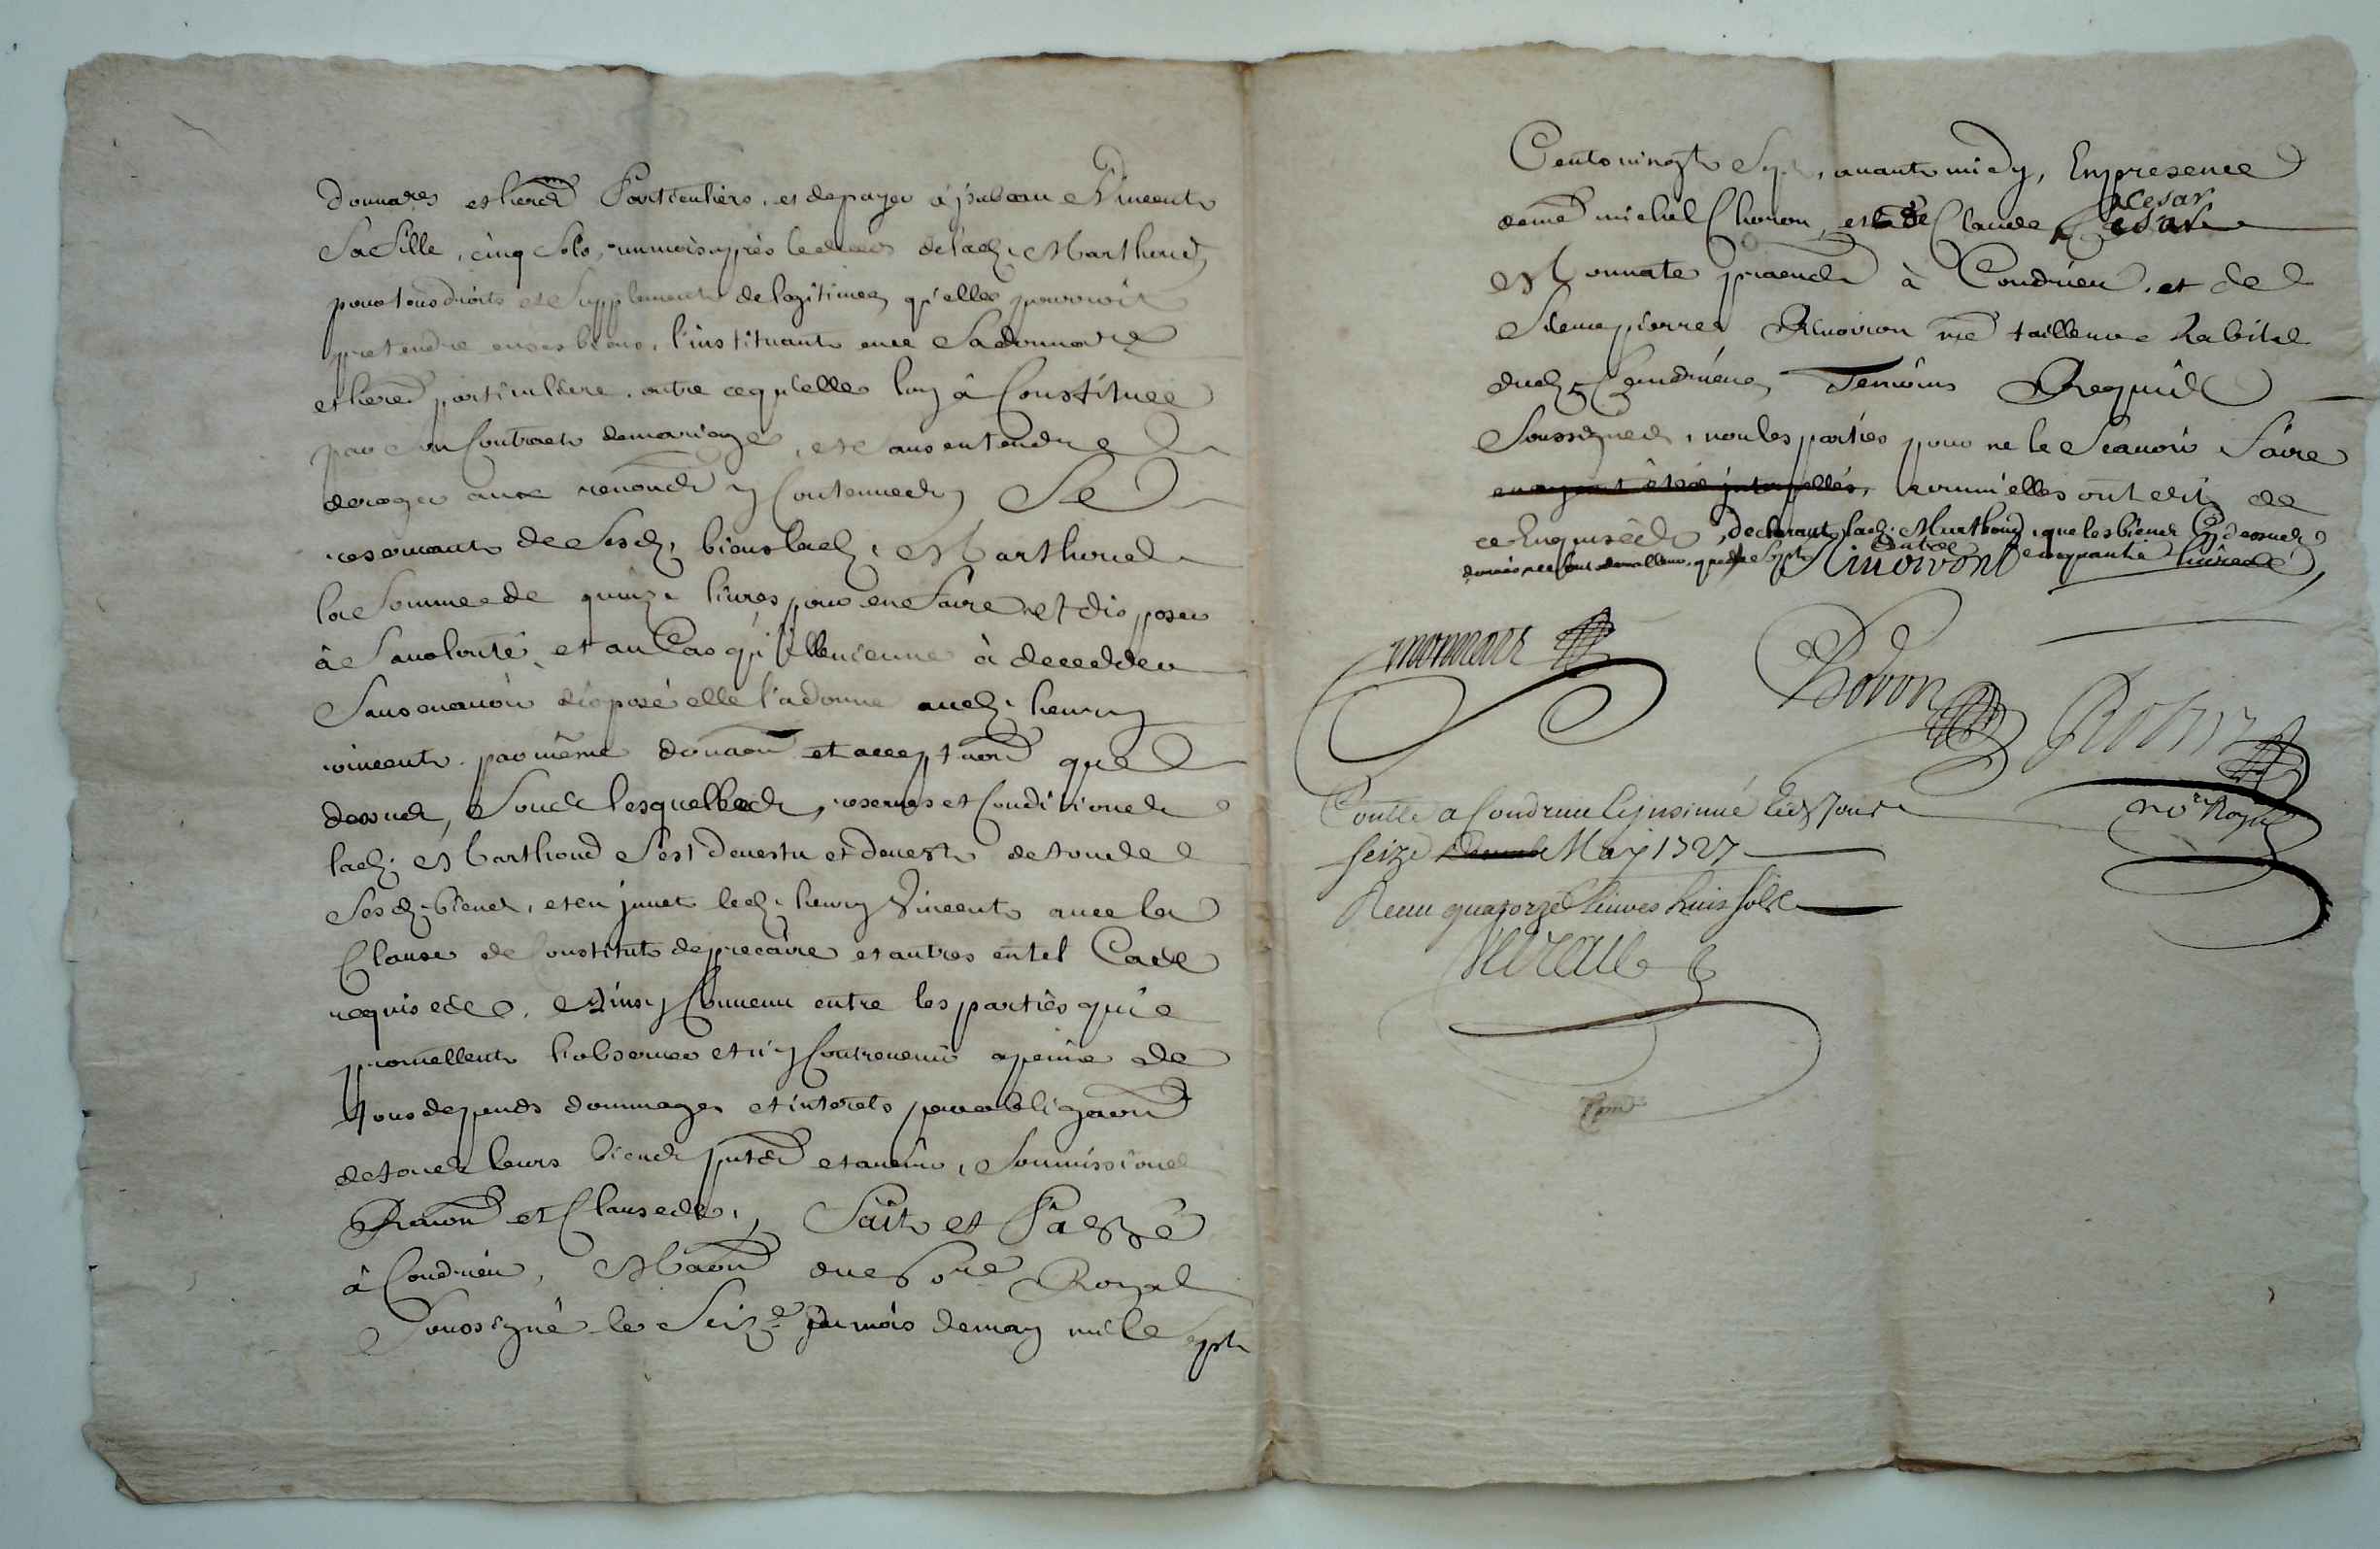 donnatres et herers Particuliers, et de payer a jsabeau Vincent
Sa fille, cinq Sols, un mois apres le deces de lad. Marthoud
pour tous droits et Supplement de legitimes qu'elle pourroit
pretendre en ses biens, l'instituant en ce Sa donnatre
et herere particuliere, outre ce qu'elle luy â Constitué
par Son Contract de mariage, et Sans entendre
deroger aux renonons y Contenues, Se
reservant de Sesd. biens lad. Marthoud
la Somme de quinze livres pour en faire et disposer
â Sa volonté, et au Cas qu'elle vienne à decedder
Sans en avoir disposé elle l'a donne aud. henry
vincent par même donaon et acceptaon que
dessus, Sous lesquelles reserves et Conditions
lad. Marthoud S'est devestu et devest de tous
Sesd. biens, et en jnvet led. henry Vincent avec la
Clause de Constitut de precaire et autres en tel Cas
requises. Ainsy Convenu entre les parties qui
promettent l'observer et n'y Contrevenir a peine de
tous depends dommages et interets par obligaon
de tous leurs biens puts et avenir, Soumissions
Renons et Clauses, Fait et Passé
à Condrieu, Maison du nore Royal
Soussigné le Seize du mois de may mil Sept
Cent vingt Sept, avant midy, En presence
de me michel Chovon, et de Claude Cesar
Cesar
Monnate praticn à Condrieu, et de
Sieur pierre Rinoiron me tailleur habitt
dud. Condrieu Temoins Requis
Soussignés, non les parties pour ne le Scavoir faire
en ayant été interpellés, comm'elles ont dit de
ce Enquises, declarant lad. Marthoud que les biens Cy dessus
donnés ne sont de valleur que de Sept Cent cinquante livres
Rinoiron
monnate
Chovon
Robin
nore Royal
Contlé a Condrieu & jnsinué led. Jour
Seize May 1727
Receu quatorze livres huit sols